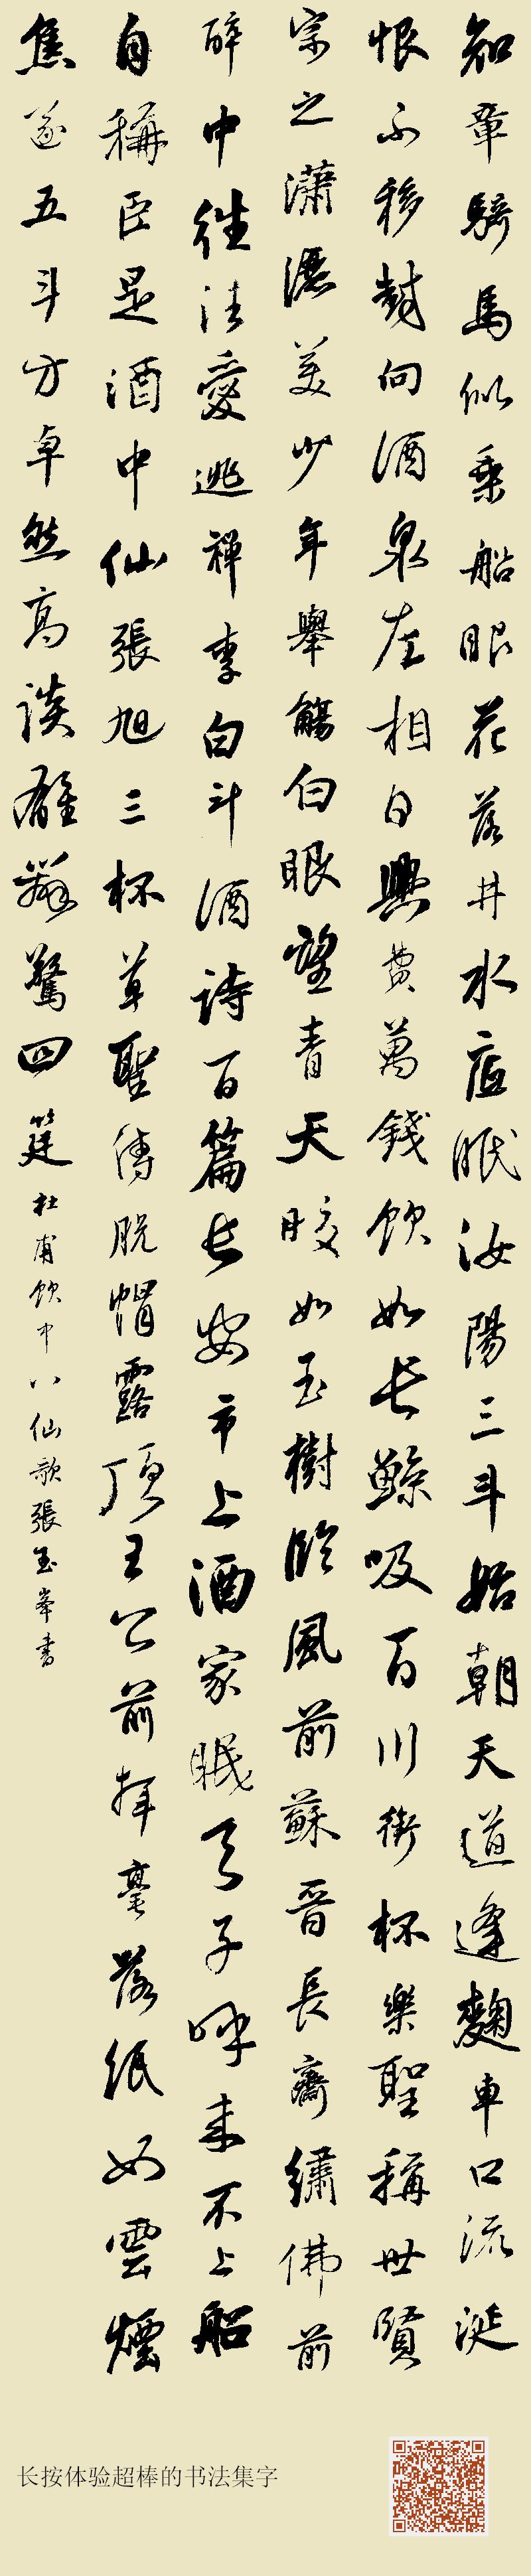 知章騎馬似乘船眼花落井水底眠汝陽三斗始朝天道逢麴車口流涎
恨不移封向酒泉左相日興費萬錢飲如長鯨吸百川銜杯樂聖稱世賢
宗之瀟灑美少年舉觴白眼望青天皎如玉樹臨風前蘇晉長齋繡佛前
醉中往往愛逃禪李白斗酒詩百篇長安市上酒家眠天子呼來不上船
自稱臣是酒中仙張旭三杯草聖傳脫帽露頂王公前揮毫落紙如雲煙
焦遂五斗方卓然高談雄辯驚四筵杜甫飲中八仙歌張玉峯書
长按体验超棒的书法集字